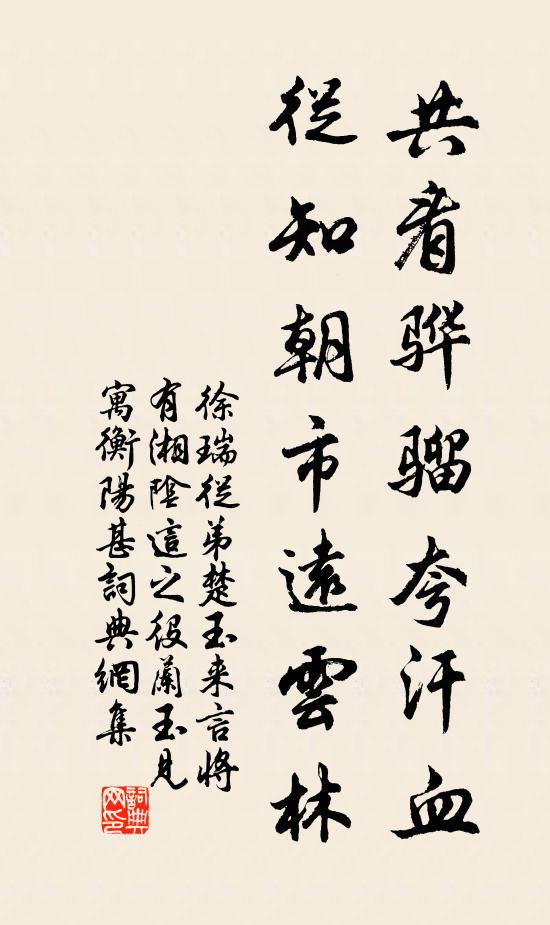 共看骅骝夸汗血
從知朝市遠雲林
徐瑞從弟楚玉来言將
有湘陰這之役蘭玉見
寓衡陽甚詞典網集
詞典网印